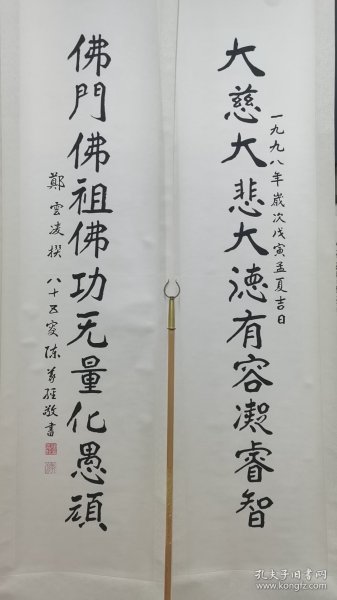 大慈大悲大德有容凝睿智
一九九八年歲次戊寅孟夏吉日
佛門佛祖佛功无量化愚頑
鄭雲凌撰
八十五叟陈敬書
孔夫子旧书网